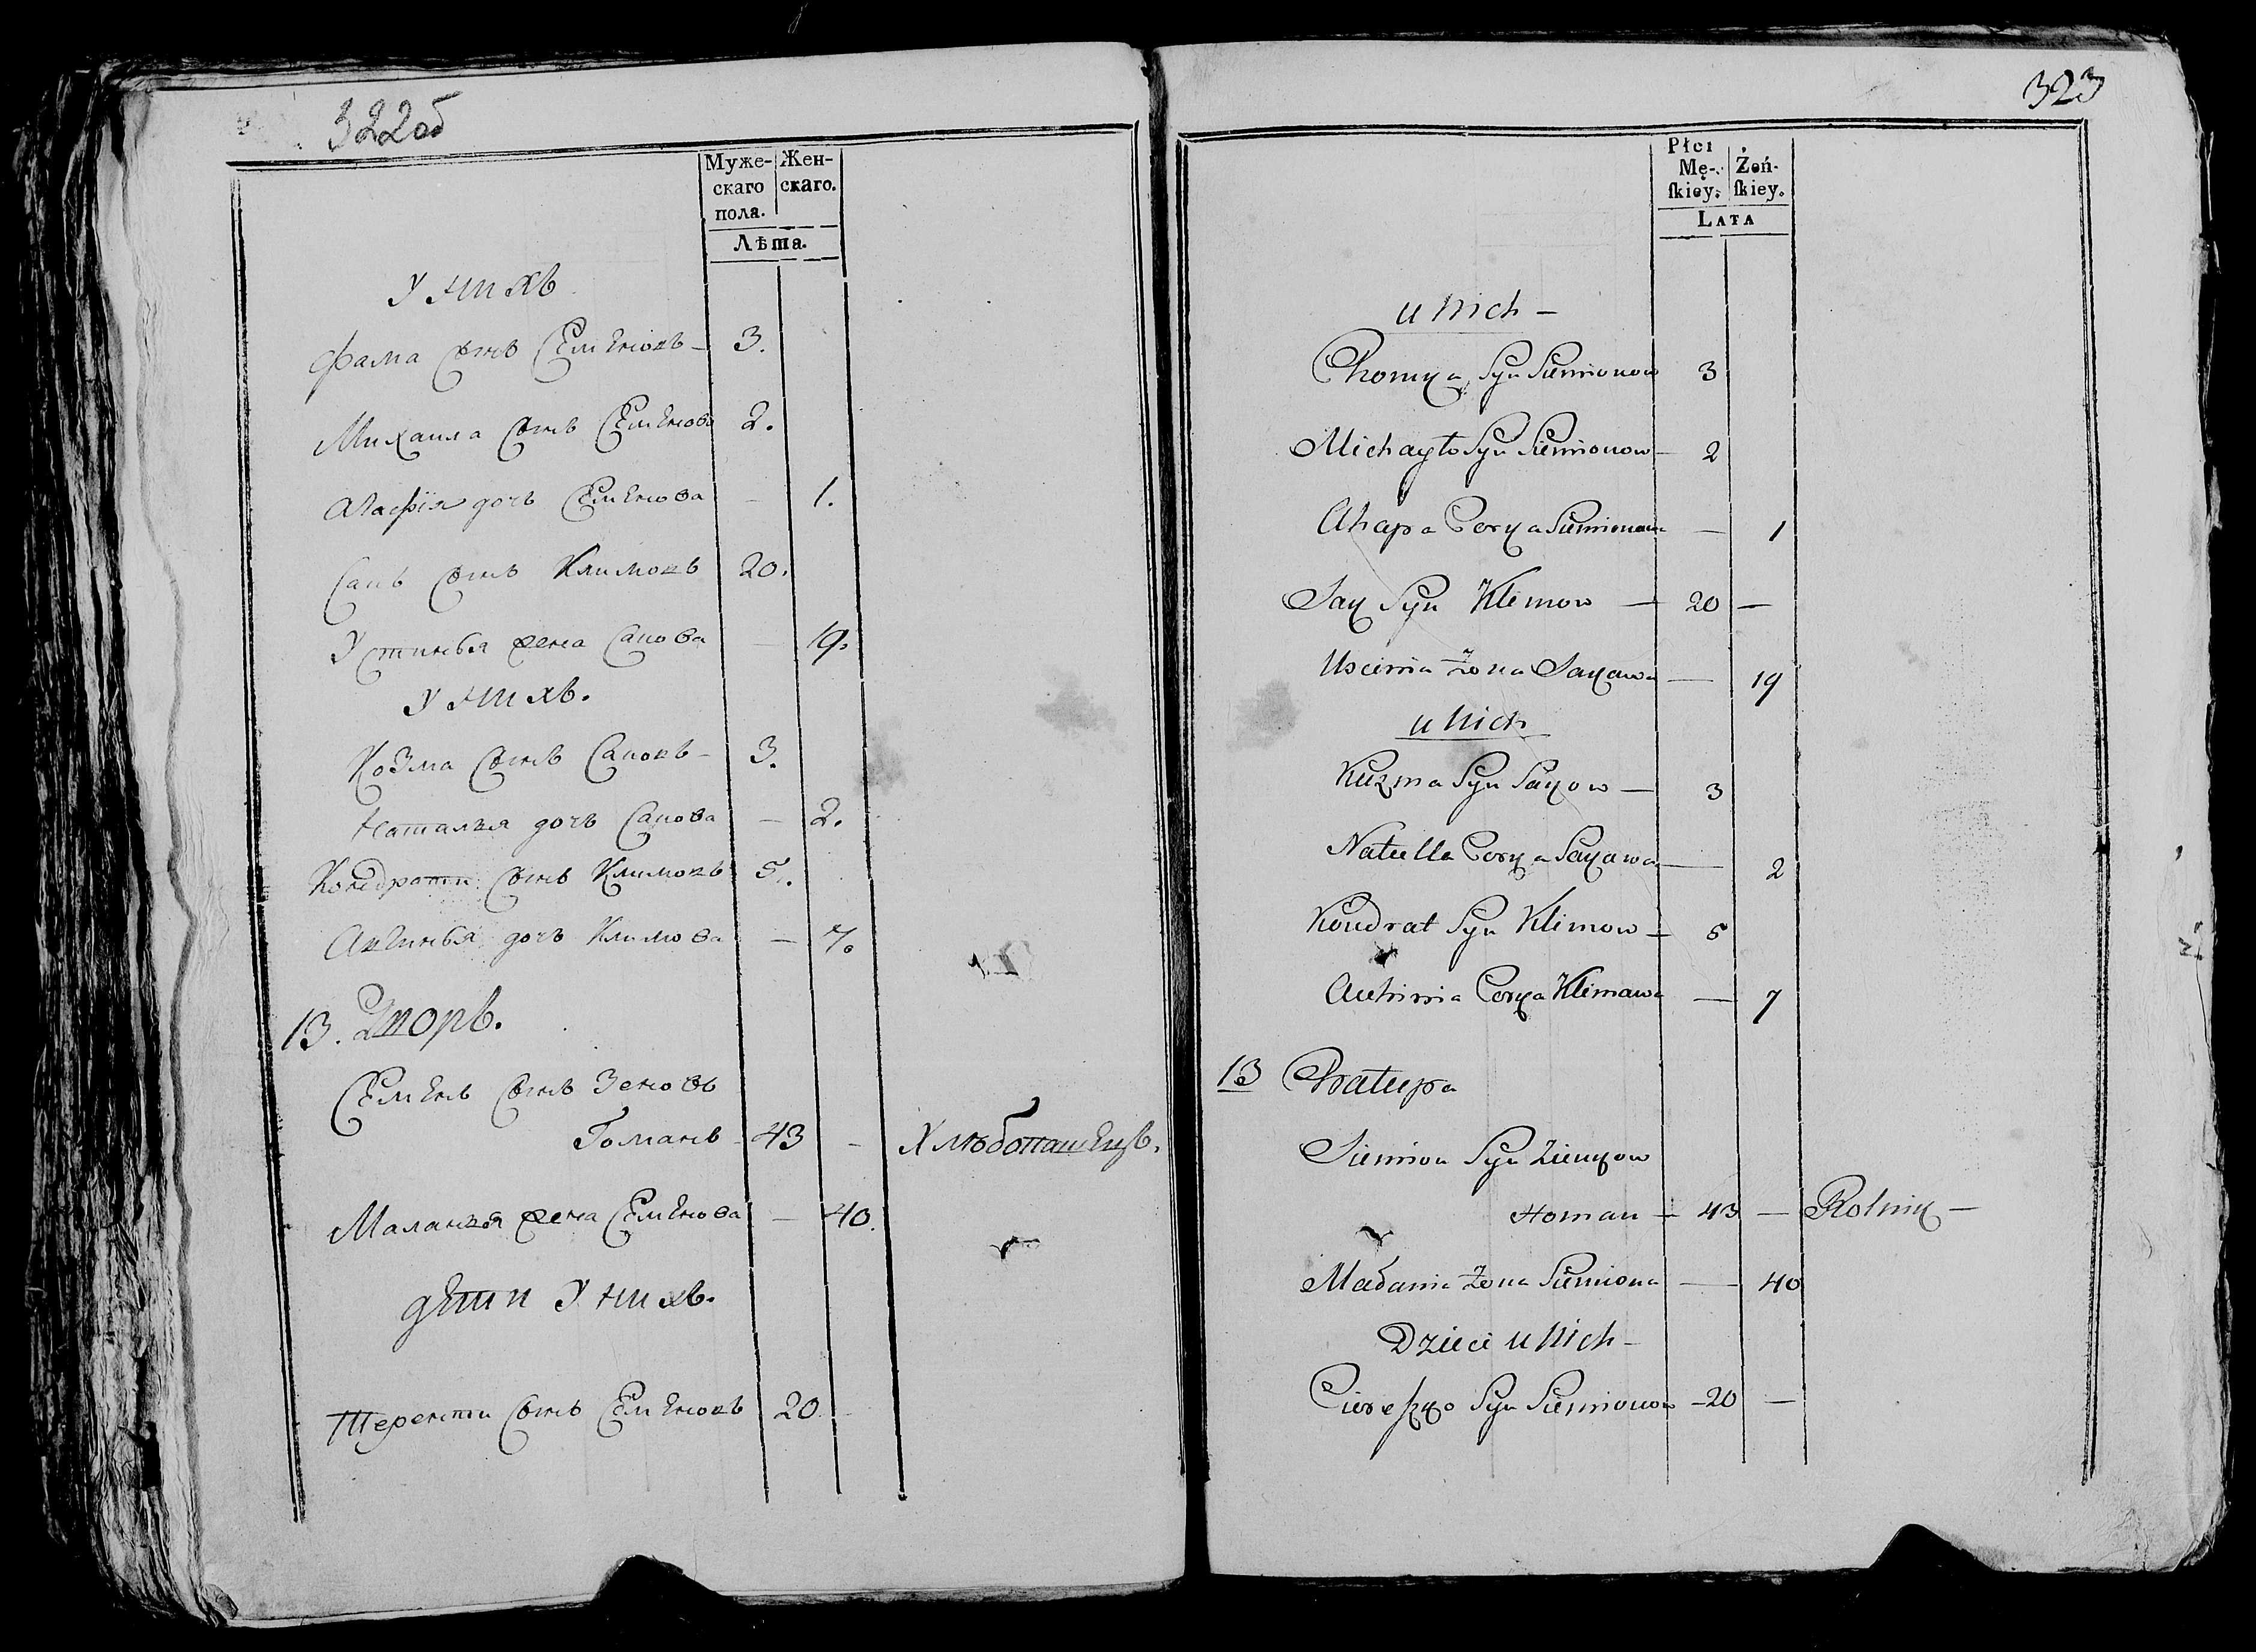 322об
Муже-
скаго
пола.
Жен-
скаго.
Лѣта.
У нихъ
Фама сынъ Семѣновъ — 3.
Михаила сынъ Семѣновъ 2.
Агафія дочь Семѣнова — 1.
Сапъ сынъ Климовъ 20.
Устинья жена Сапова — 19.
У нихъ.
Козма сынъ Саповъ — 3.
Наталья дочь Сапова — 2.
Кондрати сынъ Климовъ 5.
Авгинья дочь Климова — 7.
13. Дворъ.
Семѣнъ сынъ Зеновъ
Гоманъ — 43 — Хлѣбопашѣцъ.
Маланья жена Семѣнова — 40.
Дѣти У нихъ.
Теренти сынъ Семѣновъ 20
323
Płci
Mę-
ſkiey.
Żeń-
ſkiey.
Lata
u Nich —
Chomka Syn Siemionow 3
Michayło Syn Siemionow — 2
Ahapa Corka Siemionowa — 1
Sak Syn Klimow — 20 —
Uscinia Żona Sakawa — 19
u Nich
Kuzma Syn Sakow — 3
Natulla Corka Sakawa — 2
Kondrat Syn Klimow — 5
Auhinia Corka Klimawa — 7
13 Chatupa
Siemion Syn Zienkow
Homan — 43 — Rolnik —
Małania Żona Siemiona — 40
Dzieci u Nich —
Ciereszko Syn Siemionow — 20 —